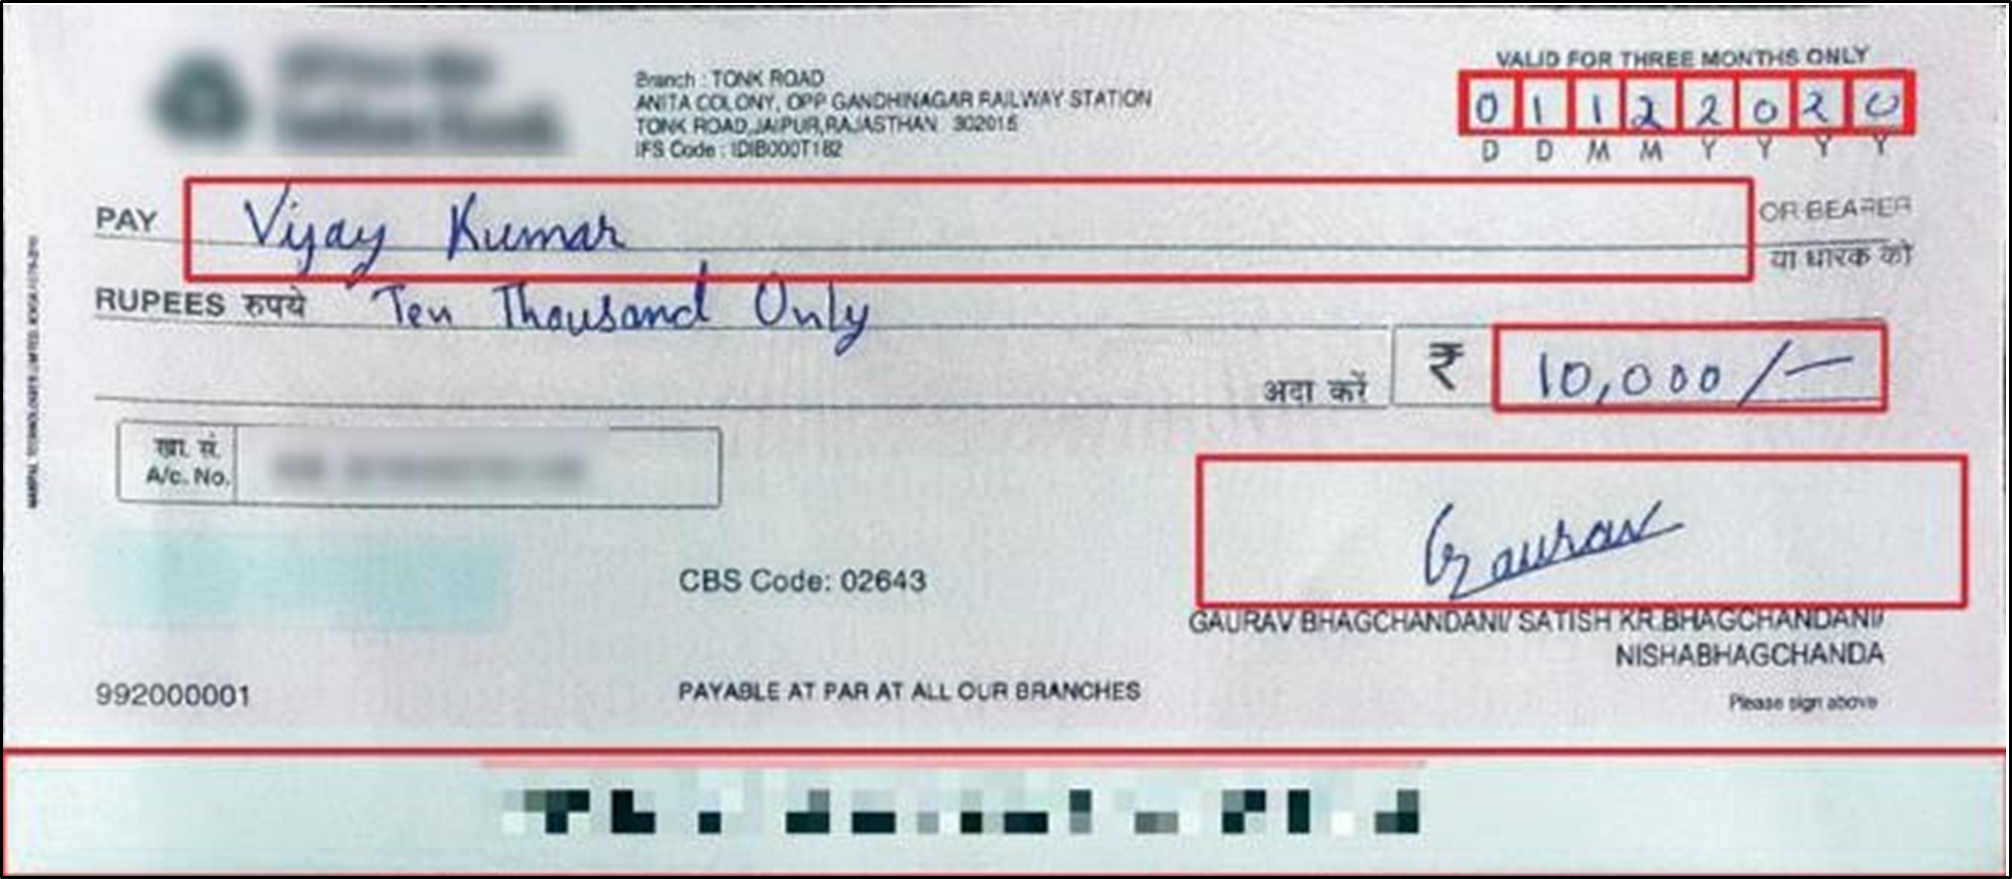 Branch : TONK ROAD
ANITA COLONY, OPP GANDHINAGAR RAILWAY STATION
TONK ROAD,JAIPUR,RAJASTHAN 302015
IFS Code : IDIB000T182
VALID FOR THREE MONTHS ONLY
0 1 1 2 2 0 2 0
D D M M Y Y Y Y
PAY Vijay Kumar OR BEARER
या धारक को
RUPEES रुपये Ten Thousand Only
अदा करें ₹ 10,000/-
खा. सं.
A/c. No.
Gaurav
CBS Code: 02643
GAURAV BHAGCHANDANI/ SATISH KR.BHAGCHANDANI/
NISHABHAGCHANDA
992000001 PAYABLE AT PAR AT ALL OUR BRANCHES
Please sign above